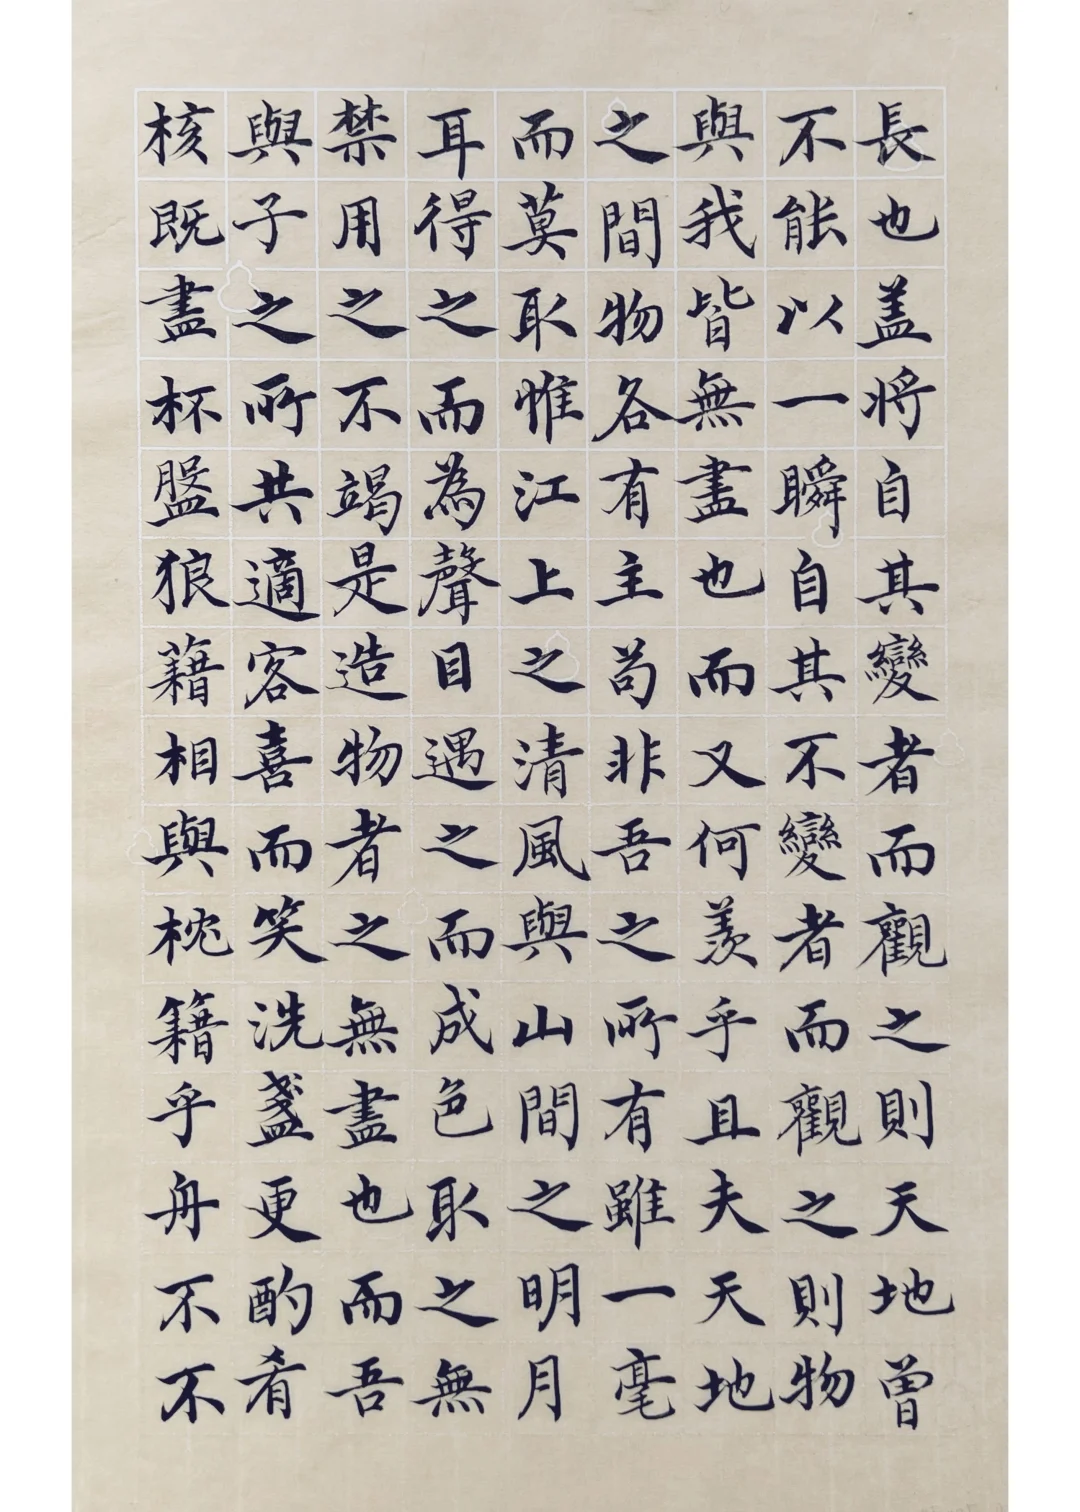 長也盖将自其變者而觀之則天地曾
不能以一瞬自其不變者而觀之則物
與我皆無盡也而又何羨乎且夫天地
之間物各有主苟非吾之所有雖一毫
而莫取惟江上之清風與山間之明月
耳得之而為聲目遇之而成色取之無
禁用之不竭是造物者之無盡也而吾
與子之所共適客喜而笑洗盞更酌肴
核既盡杯盤狼藉相與枕籍乎舟不不